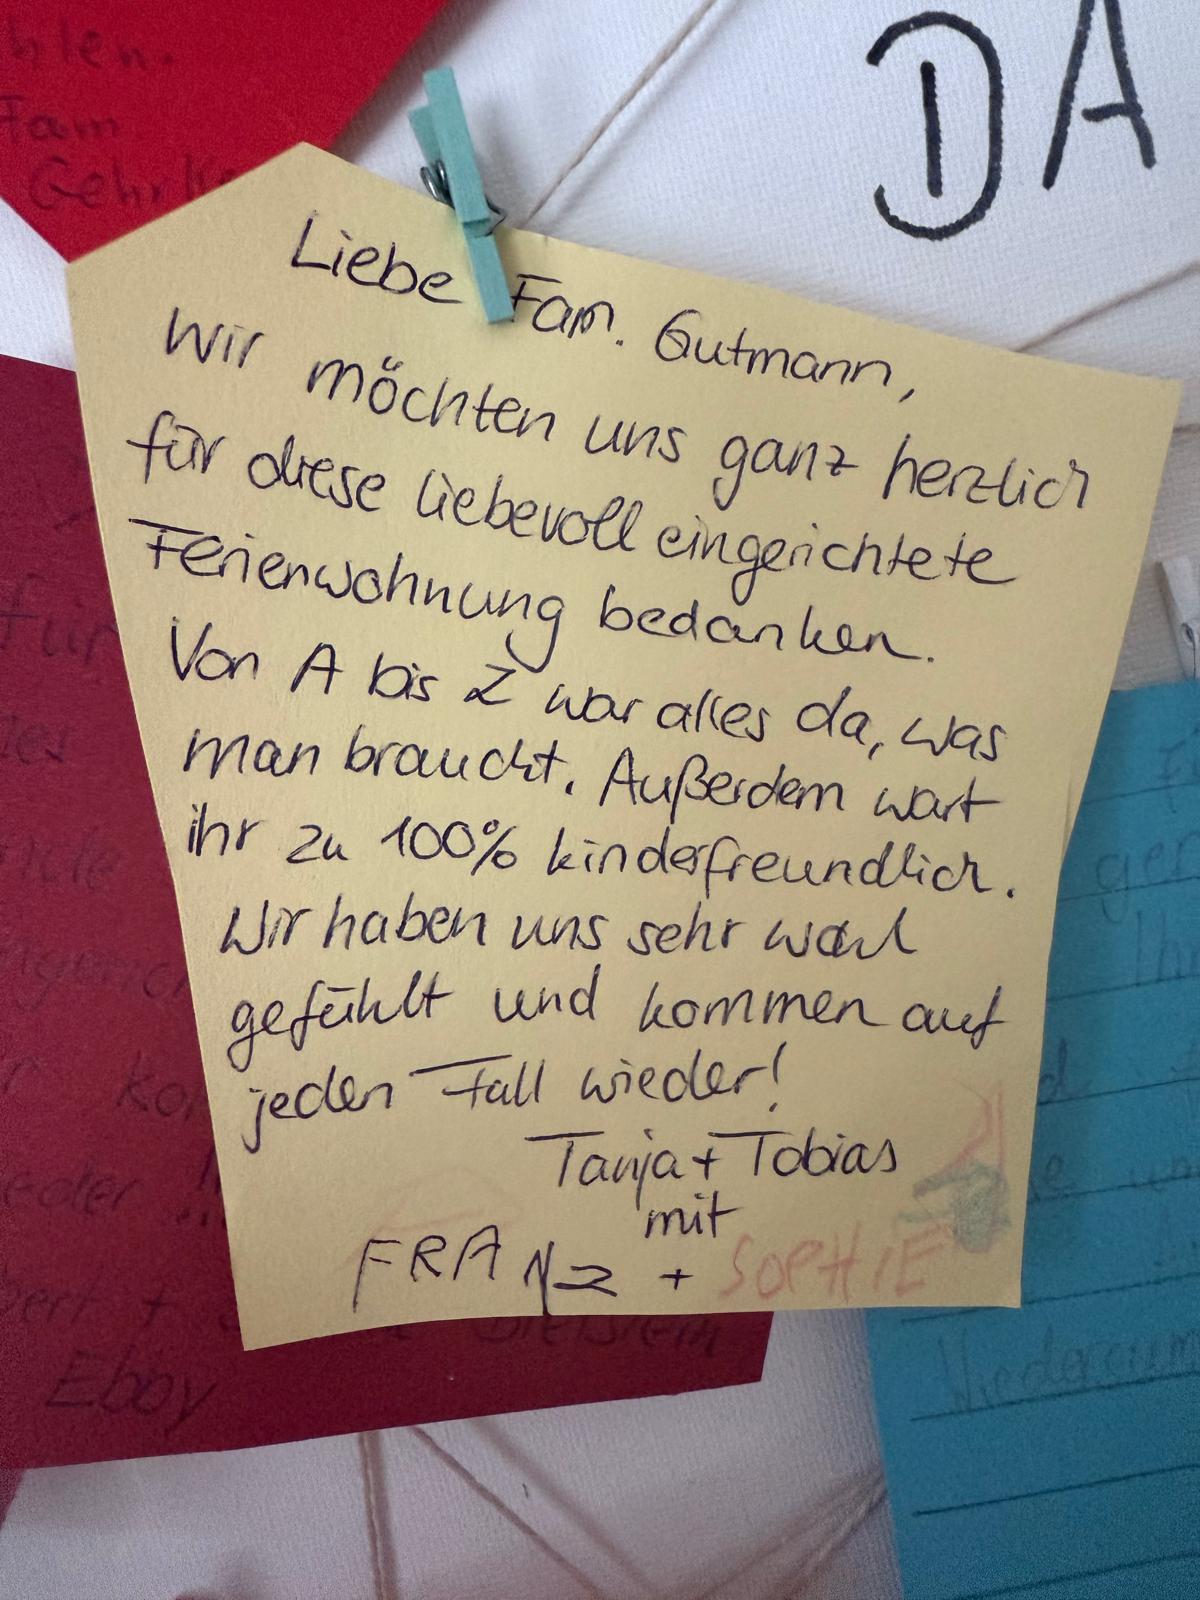 DA
hlen.
Fam
Gehrke
Liebe Fam. Gutmann,
Wir möchten uns ganz herzlich
für diese liebevoll eingerichtete
Ferienwohnung bedanken.
Von A bis Z war alles da, was
man braucht. Außerdem wart
ihr zu 100% kinderfreundlich.
Wir haben uns sehr wohl
gefühlt und kommen auf
jeden Fall wieder!
Tanja + Tobias
mit
FRANZ + SOPHIE
für
Ebby